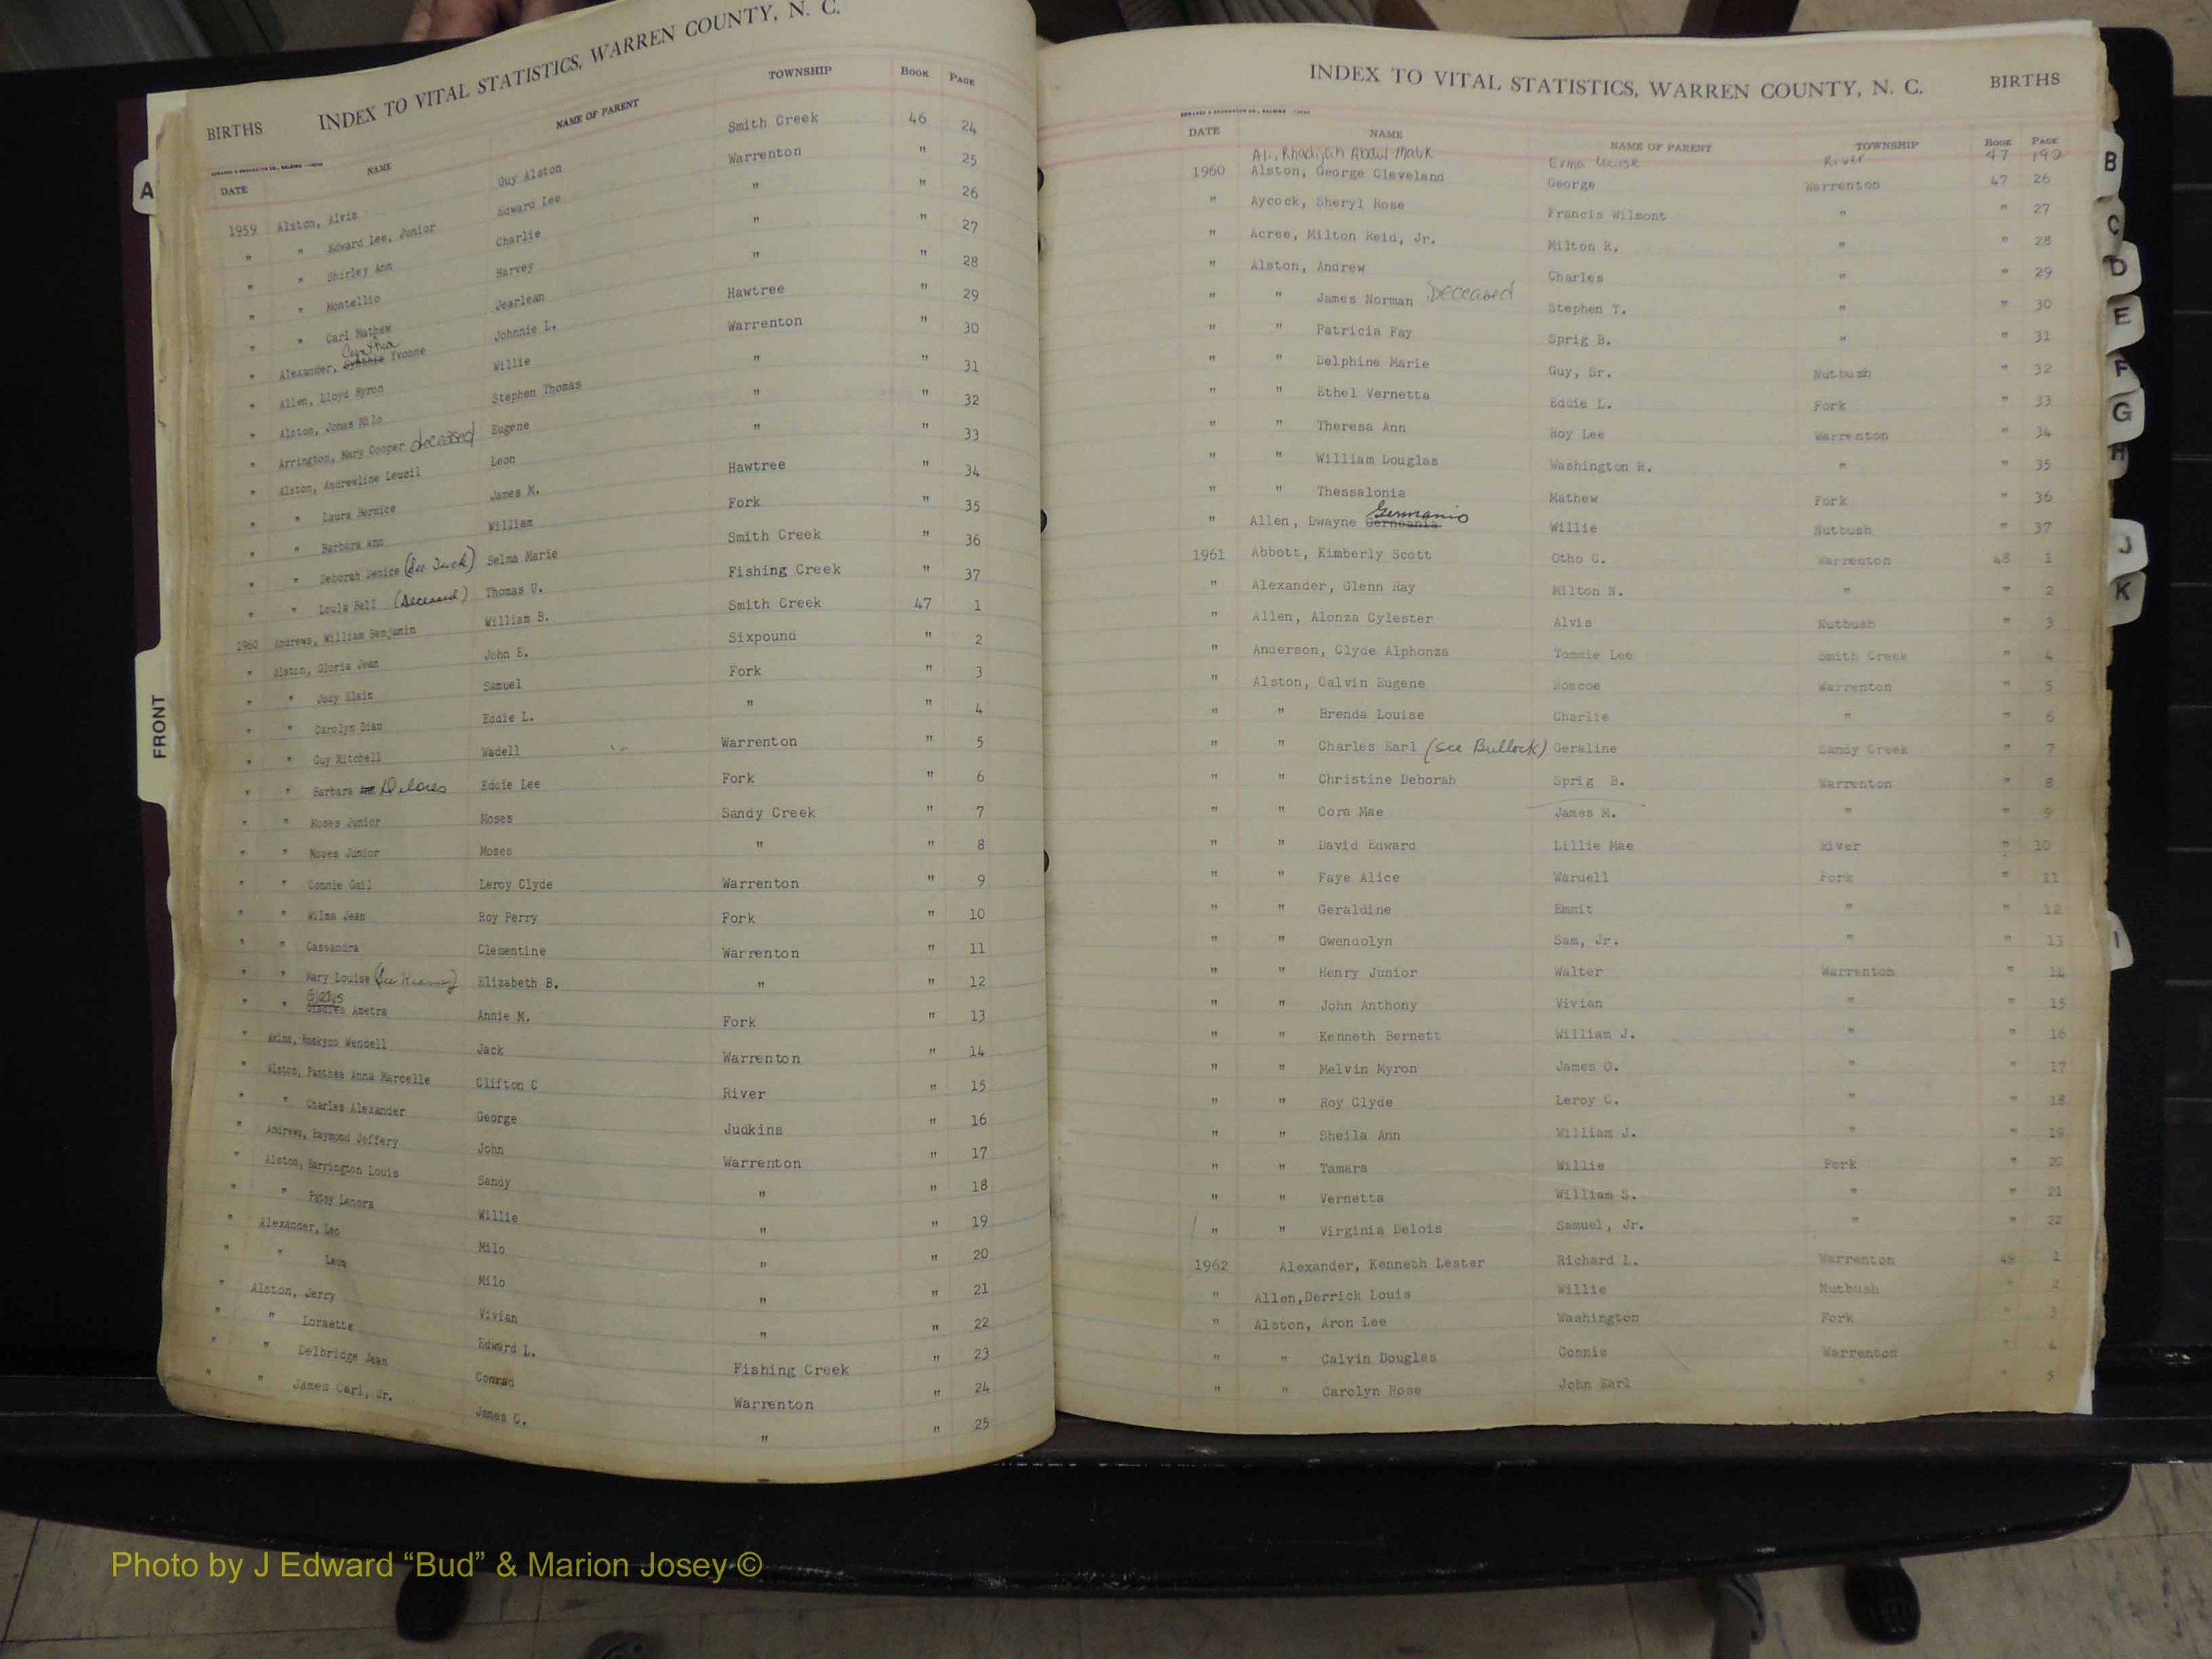 INDEX TO VITAL STATISTICS, WARREN COUNTY, N. C.
BIRTHS
DATE NAME NAME OF PARENT TOWNSHIP BOOK PAGE
1959 Alston, Alvis Guy Alston Smith Creek 46 24
" " Edward Lee, Junior Edward Lee Warrenton " 25
" " Shirley Ann Charlie " " 26
" " Montellio Harvey " " 27
" " Carl Mathew Jearlean " " 28
" Alexander, Yvonne Johnnie L. Hawtree " 29
" Allen, Lloyd Byron Willie Warrenton " 30
" Alston, Jonas Milo Stephen Thomas " " 31
" Arrington, Mary Cooper deceased Eugene " " 32
" Alston, Andrewline Leucil Leon " " 33
" " Laura Bernice James M. Hawtree " 34
" " Barbara Ann William Fork " 35
" " Deborah Denice Selma Marie Smith Creek " 36
" " Louis Bell (Deceased) Thomas U. Fishing Creek " 37
1960 Andrews, William Benjamin William B. Smith Creek 47 1
" Alston, Gloria Jean John E. Sixpound " 2
" " Judy Elain Samuel Fork " 3
" " Carolyn Dian Eddie L. " " 4
" " Guy Mitchell Wadell Warrenton " 5
" " Barbara Delores Eddie Lee Fork " 6
" " Moses Junior Moses Sandy Creek " 7
" " Moses Junior Moses " " 8
" " Connie Gail Leroy Clyde Warrenton " 9
" " Wilma Jean Roy Perry Fork " 10
" " Cassandra Clementine Warrenton " 11
" " Mary Louise Elizabeth B. " " 12
" " Gladys Ametra Annie M. Fork " 13
" Akins, Wendell Jack Warrenton " 14
" Alston, Panthea Anna Marcelle Clifton C River " 15
" " Charles Alexander George Judkins " 16
" Andrews, Raymond Jeffery John Warrenton " 17
" Alston, Barrington Louis Sandy " " 18
" " Patsy Lenora Willie " " 19
" Alexander, Leo Milo " " 20
" " Leon Milo " " 21
" Alston, Jerry Vivian " " 22
" " Loraette Edward L. Fishing Creek " 23
" " Delbridge Jean Conrad Warrenton " 24
" " James Carl, Jr. James C. " " 25
INDEX TO VITAL STATISTICS, WARREN COUNTY, N. C. BIRTHS
DATE NAME NAME OF PARENT TOWNSHIP BOOK PAGE
Ali, Khadijah Abdul Malik Erma Louise River 47 190
1960 Alston, George Cleveland George Warrenton 47 26
" Aycock, Sheryl Rose Francis Wilmont " " 27
" Acree, Milton Reid, Jr. Milton R. " " 28
" Alston, Andrew Charles " " 29
" " James Norman Deceased Stephen T. " " 30
" " Patricia Fay Sprig B. " " 31
" " Delphine Marie Guy, Sr. Nutbush " 32
" " Ethel Vernetta Eddie L. Fork " 33
" " Theresa Ann Roy Lee Warrenton " 34
" " William Douglas Washington R. " " 35
" " Thessalonia Mathew Fork " 36
" Allen, Dwayne Germanio Willie Nutbush " 37
1961 Abbott, Kimberly Scott Otho C. Warrenton 48 1
" Alexander, Glenn Ray Milton N. " " 2
" Allen, Alonza Cylester Alvis Nutbush " 3
" Anderson, Clyde Alphonza Tommie Lee Smith Creek " 4
" Alston, Calvin Eugene Roscoe Warrenton " 5
" " Brenda Louise Charlie " " 6
" " Charles Earl (See Bullock) Geraline Sandy Creek " 7
" " Christine Deborah Sprig B. Warrenton " 8
" " Cora Mae James M. " " 9
" " David Edward Lillie Mae River " 10
" " Faye Alice Wardell Fork " 11
" " Geraldine Emmit " " 12
" " Gwendolyn Sam, Jr. " " 13
" " Henry Junior Walter Warrenton " 14
" " John Anthony Vivian " " 15
" " Kenneth Bernett William J. " " 16
" " Melvin Myron James O. " " 17
" " Roy Clyde Leroy C. " " 18
" " Sheila Ann William J. " " 19
" " Tamara Willie Fork " 20
" " Vernetta William S. " " 21
" " Virginia Delois Samuel, Jr. " " 22
1962 Alexander, Kenneth Lester Richard L. Warrenton 49 1
" Allen, Derrick Louis Willie Nutbush " 2
" Alston, Aron Lee Washington Fork " 3
" " Calvin Douglas Connie Warrenton " 4
" " Carolyn Rose John Earl " " 5
A
FRONT
B
C
D
E
F
G
H
J
K
I
Photo by J Edward “Bud” & Marion Josey ©